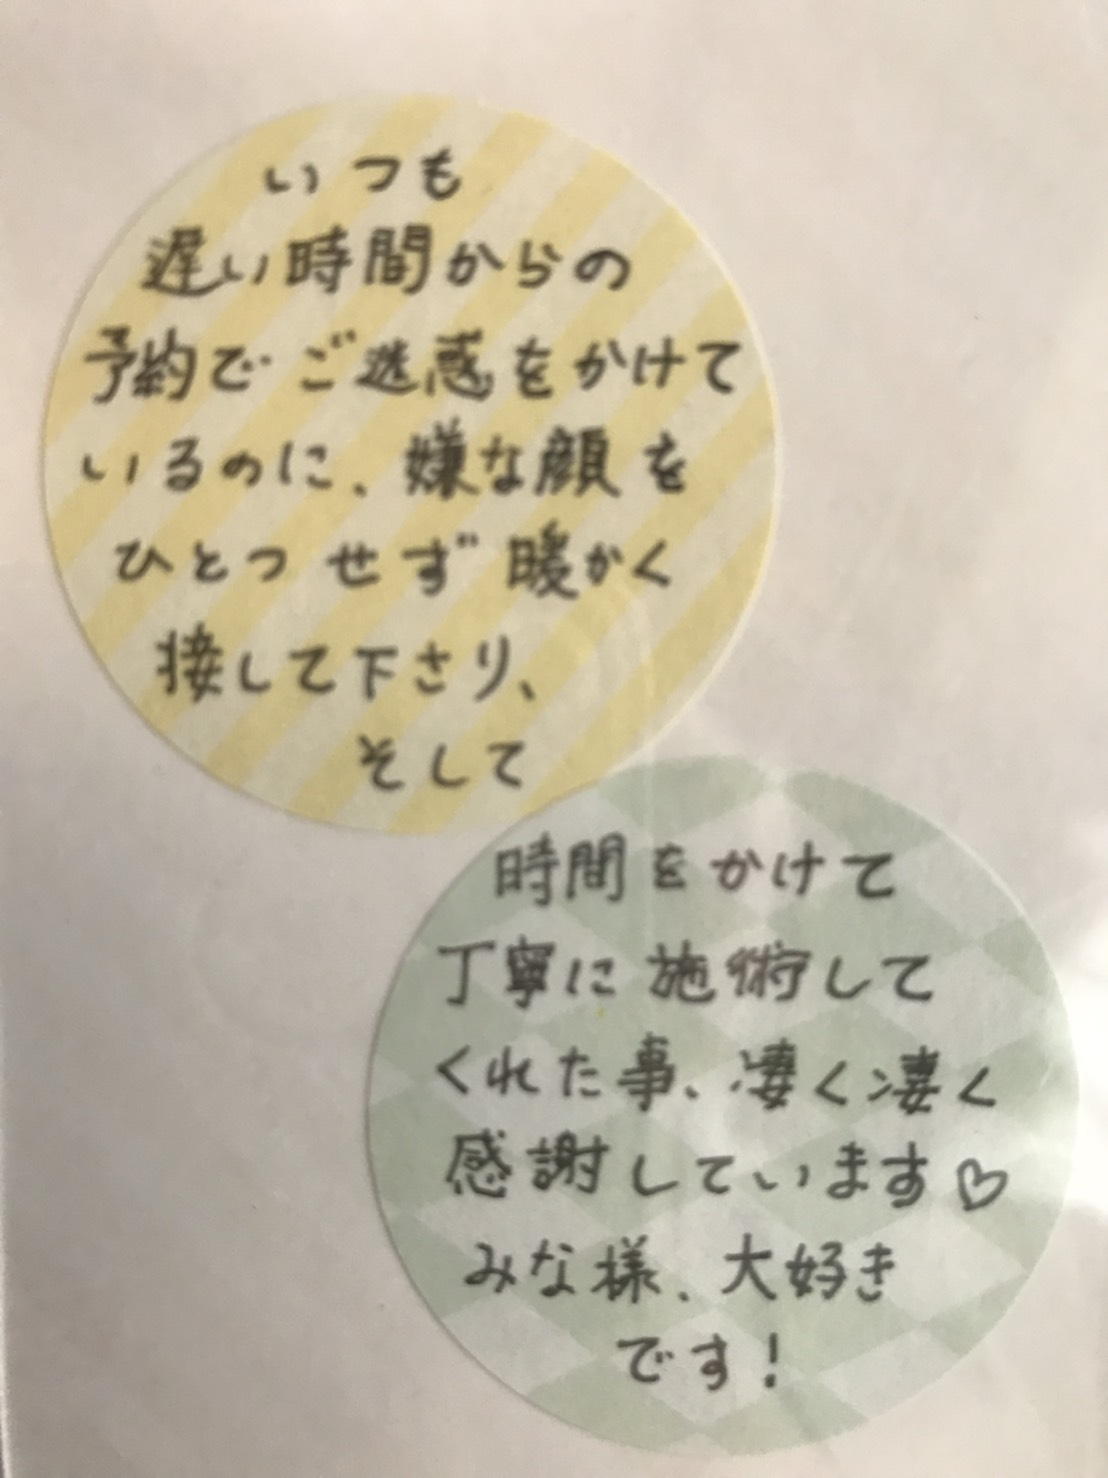 いつも
遅い時間からの
予約でご迷惑をかけて
いるのに、嫌な顔を
ひとつせず暖かく
接して下さり、
そして
時間をかけて
丁寧に施術して
くれた事、凄く凄く
感謝しています♡
みな様、大好き
です!